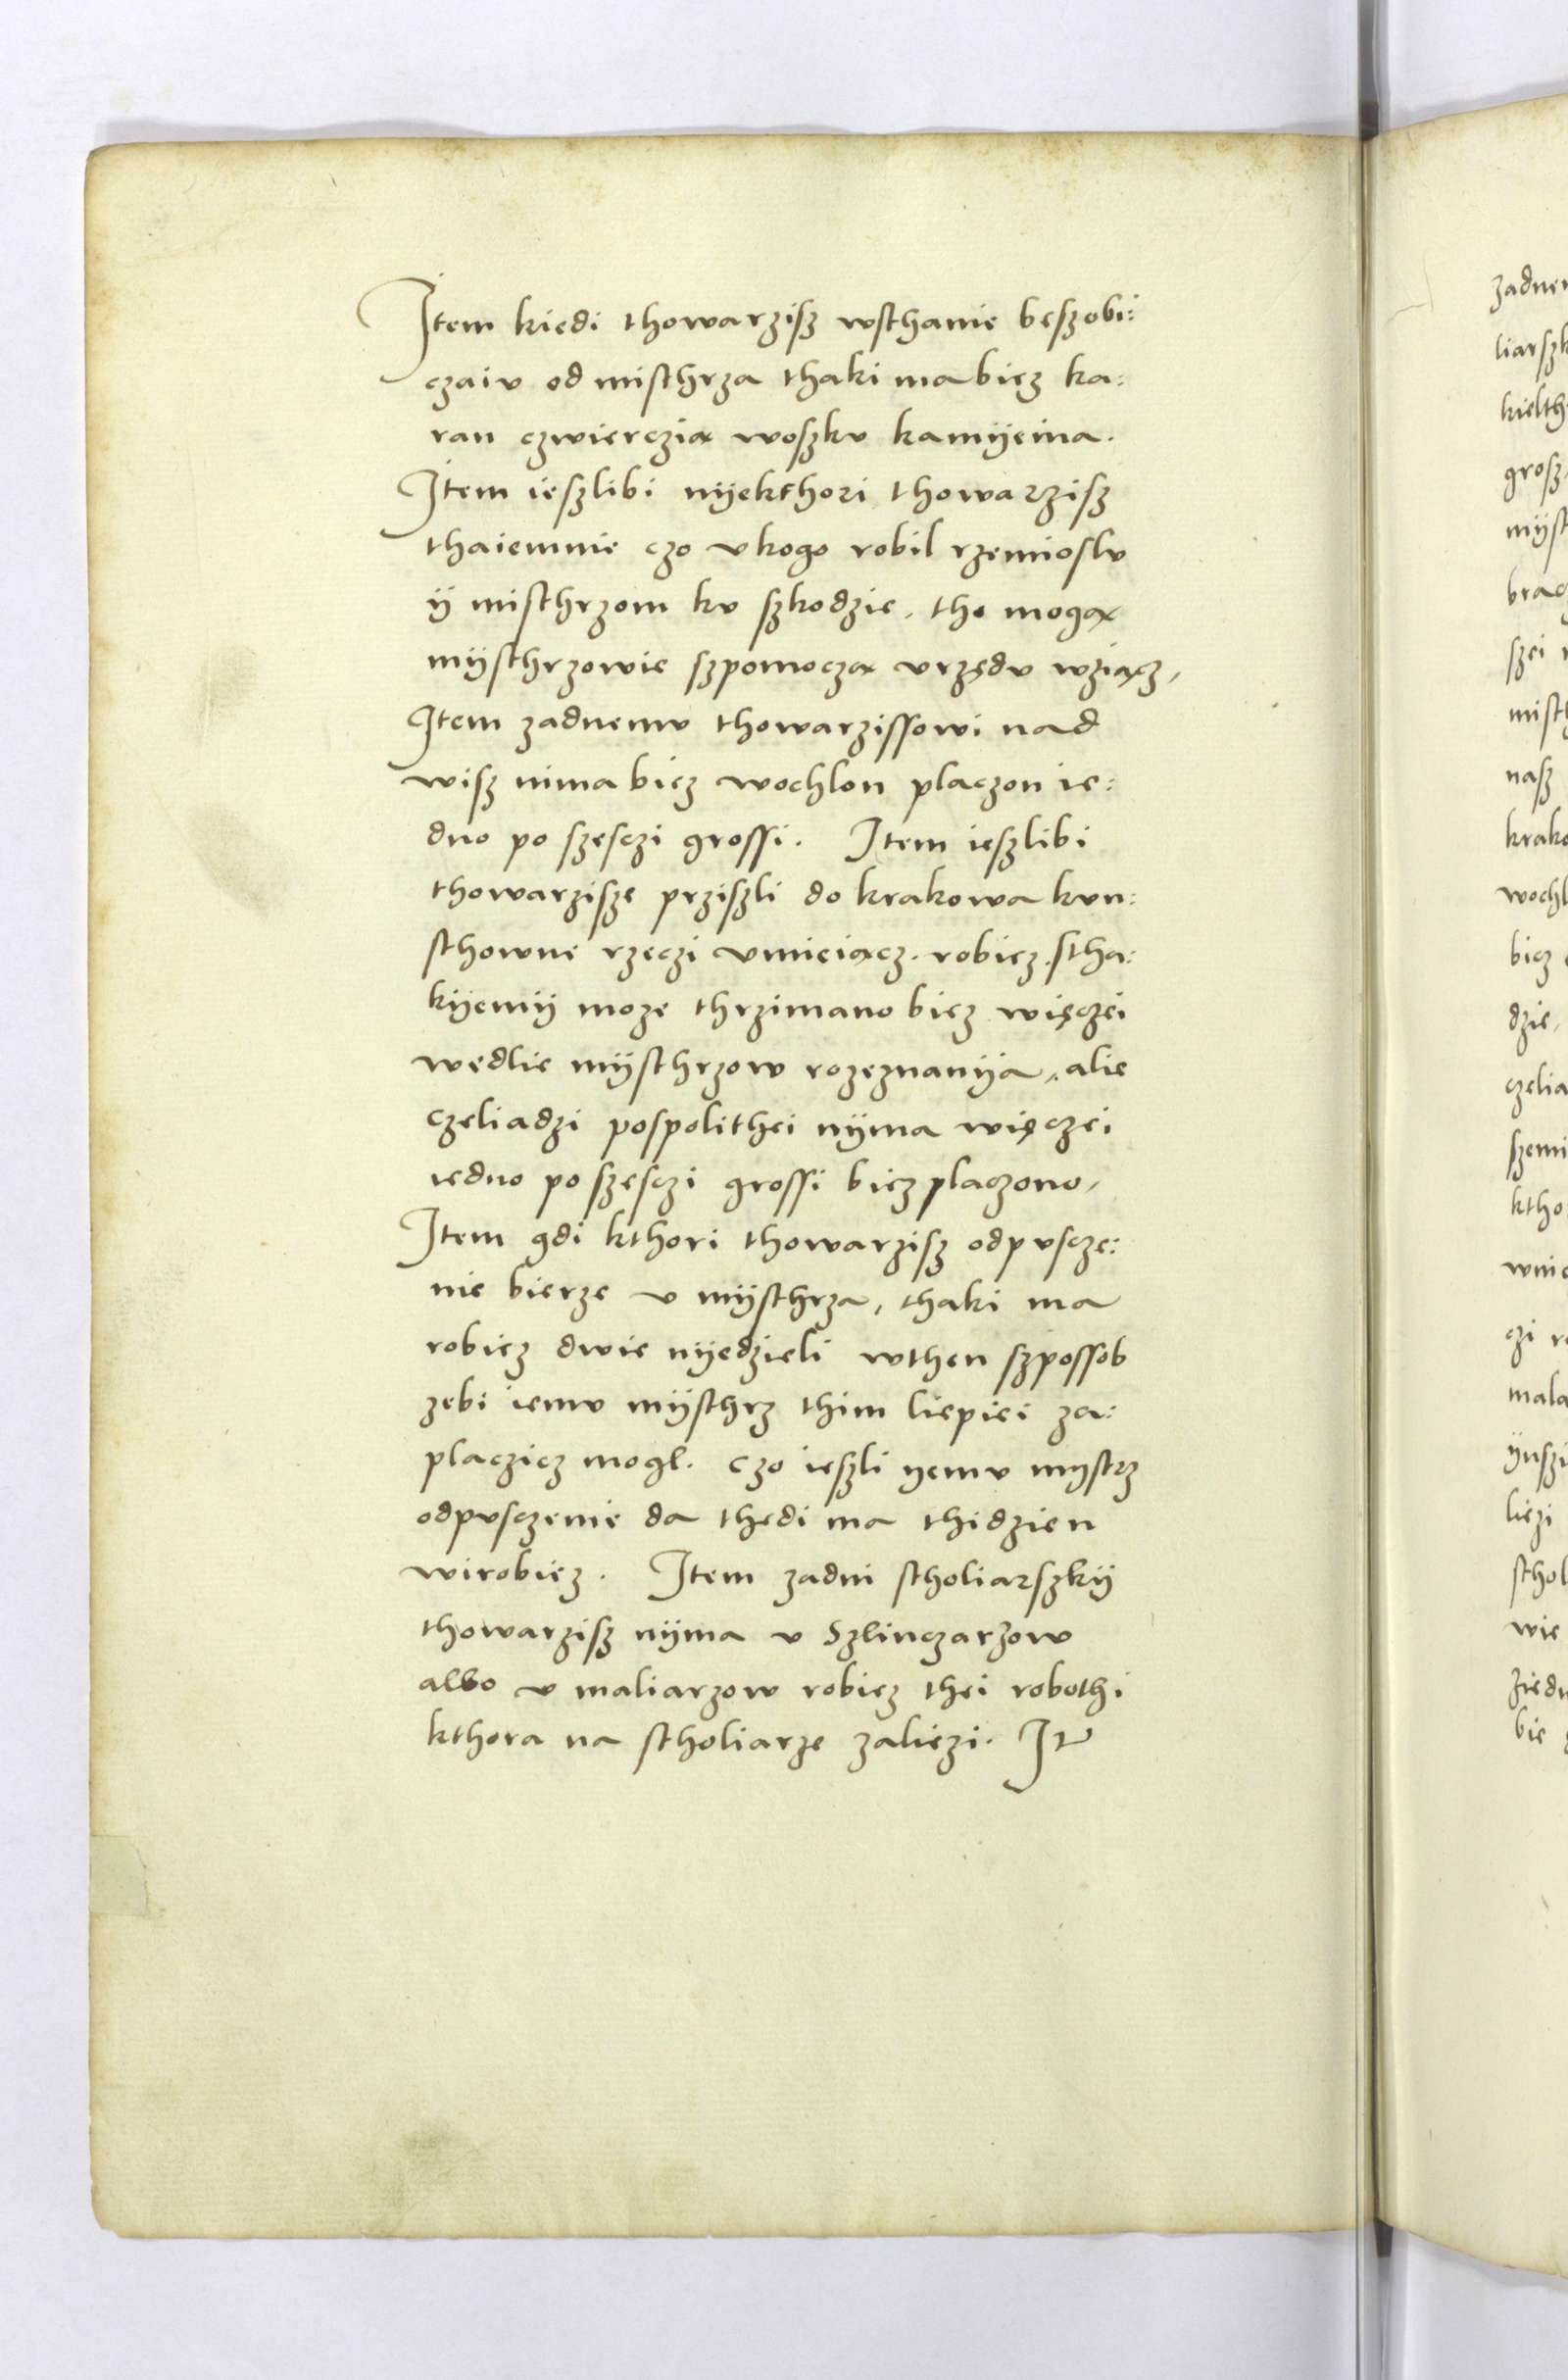 Item kiedi thowarzisz wsthanie beszobi:
czaiv od misthrza thaki ma bicz ka:
ran czwierczią woszkv kamÿeina.
Item ieszlibi nÿekthori thowarzisz
thaiemnie czo v kogo robil rzemioslv
ÿ misthrzom kv szkodzie, tho mogą
mÿsthrzowie szpomoczą vrzędv wziącz,
Item zadnemv thowarzissowi nad
wisz nima bicz wochlon placzon ie:
dno po szesczi grossi. Item ieszlibi
thowarzisze prziszli do krakowa kvn:
sthowne rzeczi vmieiącz. robicz. stha:
kÿemÿ moze thrzimano bicz więczei
wedlie mÿsthrzow rozeznanÿa, alie
czeliadzi pospolithei nÿma więczei
iedno po szesczi grossi bicz placzono,
Item gdi kthori thowarzisz odpvscze:
nie bierze v mÿsthrza, thaki ma
robicz dwie nÿedzieli wthen szpossob
zebi iemv mÿsthrz thim liepiei za:
placzicz mogl. czo ieszli yemv mystrz
odpvsczenie da thedi ma thidzien
wirobicz. Item zadni stholiarszkÿ
thowarzisz nÿma v Szlinczarzow
albo v maliarzow robicz thei robothi
kthora na stholiarze zaliezi. It
zadne
liarszk
kielth
grosz
mÿst
brac
szei
misth
nasz
krako
wochl
bicz
dzie,
czelia
szemi
ktho
wnie
czi
mala
ÿnszi
liezi
sthol
wie
ziedn
bie